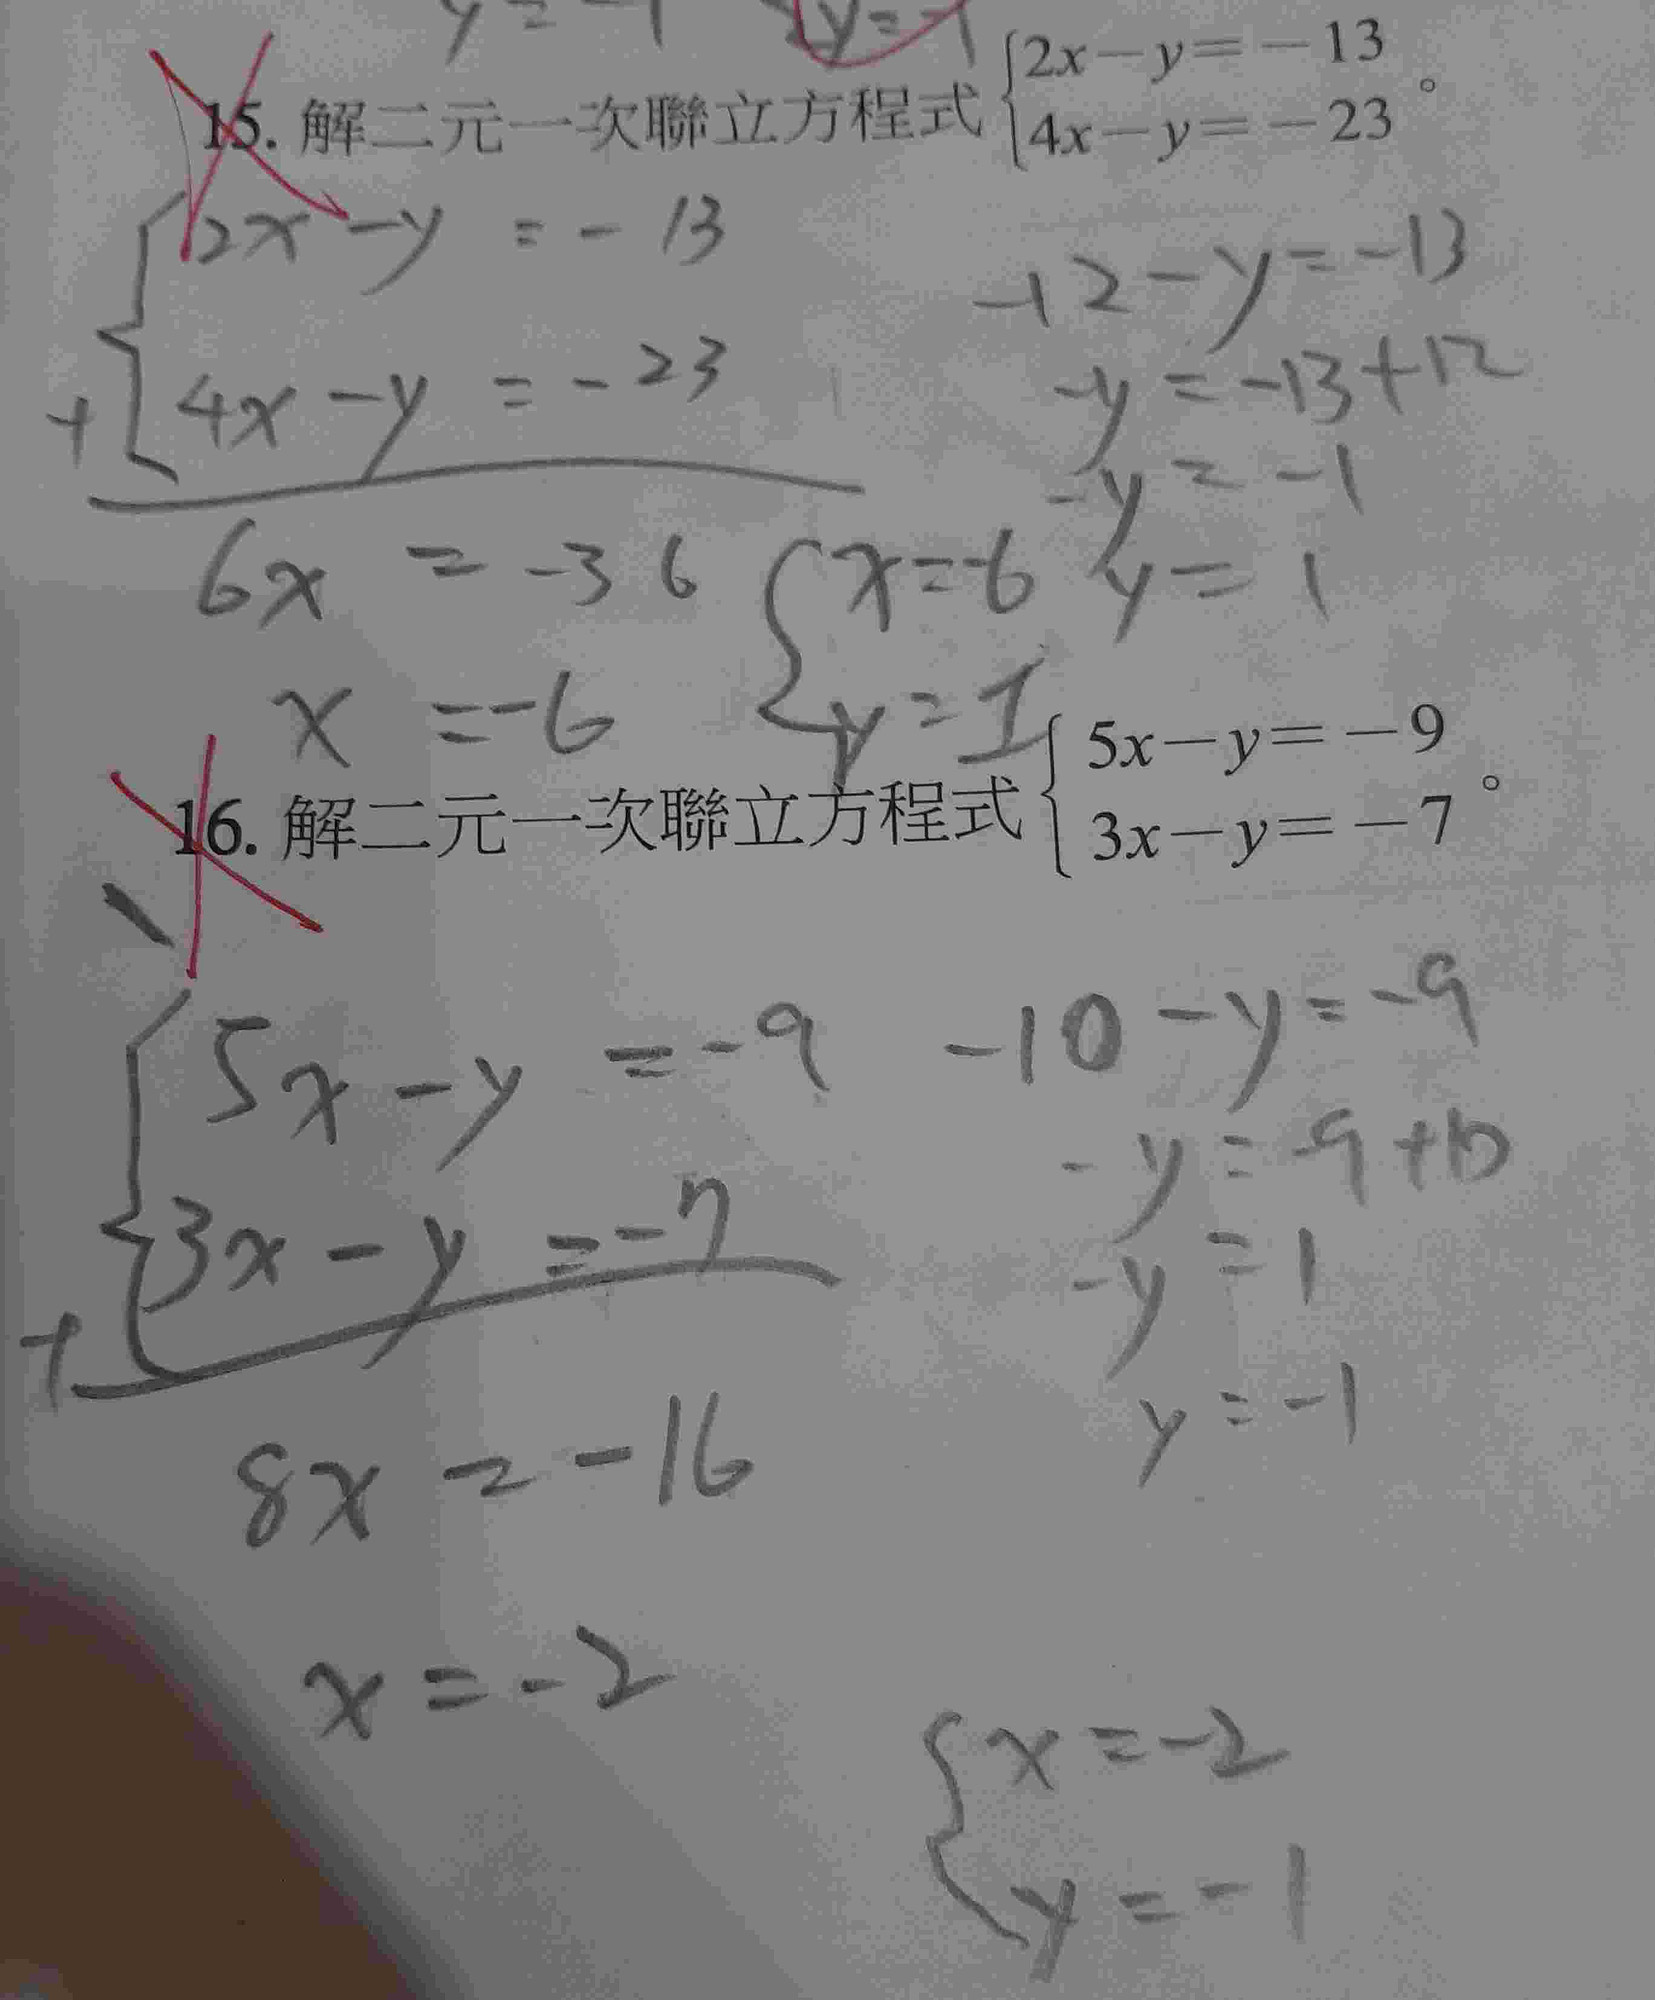 y = -1 y = -1
15. 解二元一次聯立方程式 { 2x－y＝－13
4x－y＝－23 。
2x - y = - 13
+ 4x - y = - 23
6x = - 36
x = - 6
-12 - y = -13
-y = -13 + 12
-y = -1
y = 1
{ x = -6
y = 1
16. 解二元一次聯立方程式 { 5x－y＝－9
3x－y＝－7 。
5x - y = - 9
+ 3x - y = - 7
8x = - 16
x = - 2
-10 - y = -9
- y = -9 + 10
- y = 1
y = -1
{ x = -2
y = -1